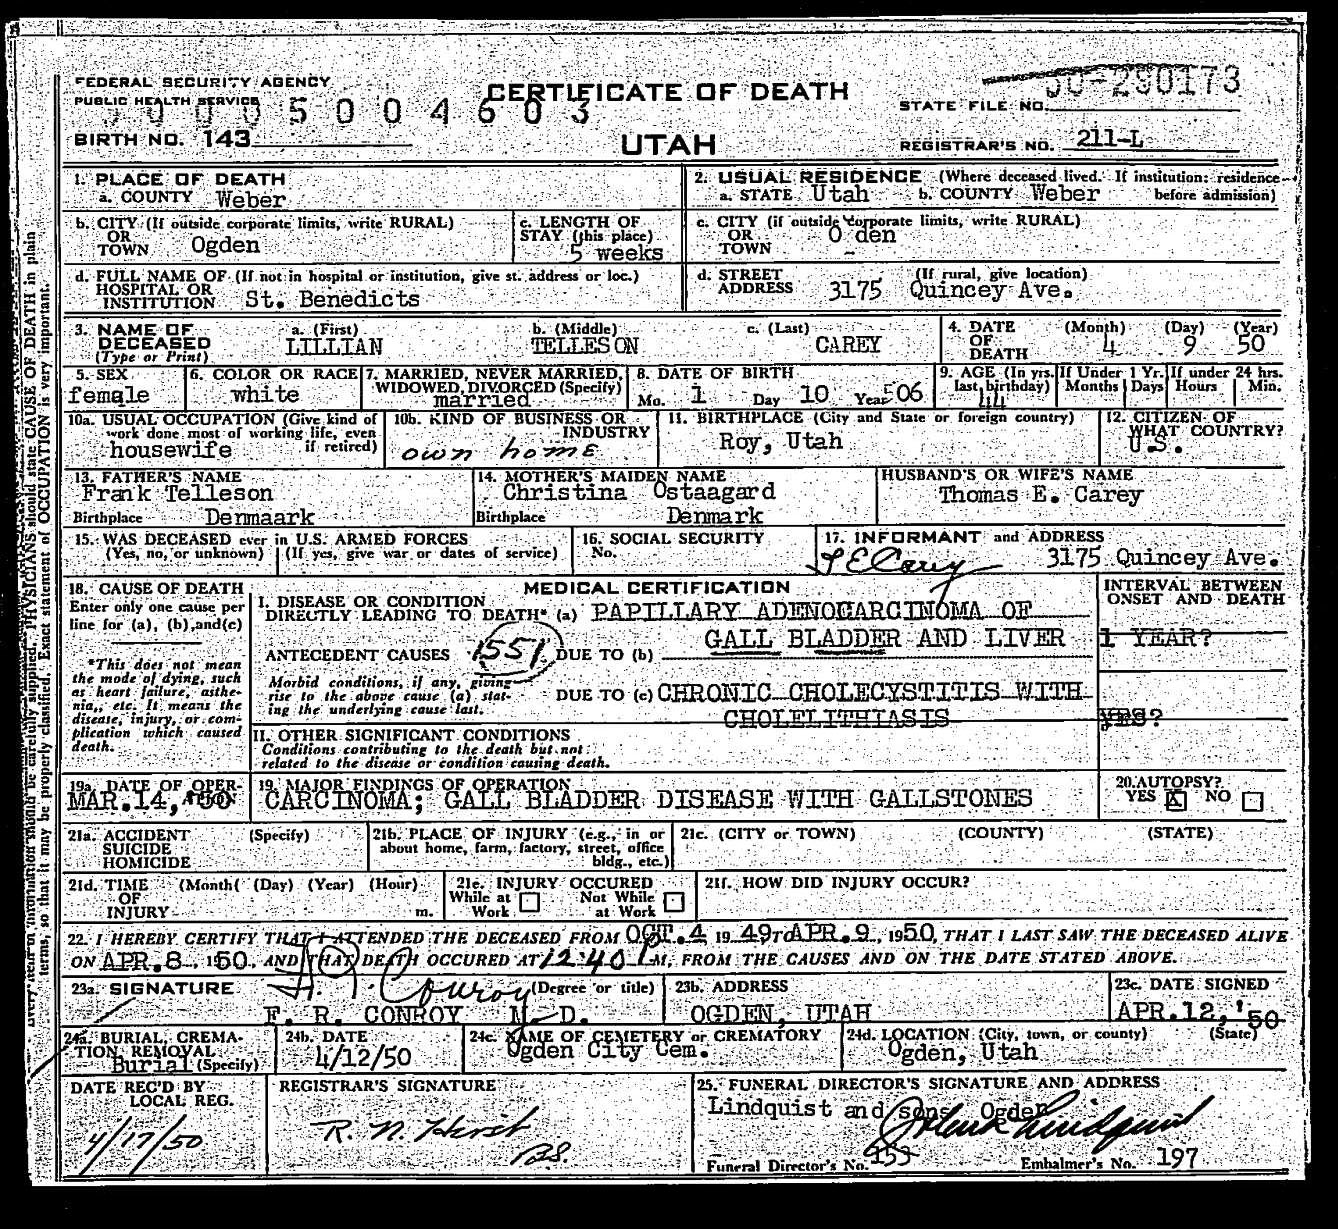 FEDERAL SECURITY AGENCY
PUBLIC HEALTH SERVICE
5004603
BIRTH NO. 143
CERTIFICATE OF DEATH
UTAH
STATE FILE NO. 50-290173
REGISTRAR'S NO. 211-L
1. PLACE OF DEATH
a. COUNTY Weber
2. USUAL RESIDENCE (Where deceased lived. If institution: residence before admission)
a. STATE Utah b. COUNTY Weber
b. CITY (If outside corporate limits, write RURAL)
OR
TOWN Ogden
c. LENGTH OF
STAY (this place)
5 weeks
c. CITY (if outside corporate limits, write RURAL)
OR
TOWN O den
d. FULL NAME OF (If not in hospital or institution, give st. address or loc.)
HOSPITAL OR
INSTITUTION St. Benedicts
d. STREET (If rural, give location)
ADDRESS 3175 Quincey Ave.
3. NAME OF DECEASED
(Type or Print)
a. (First) LILLIAN
b. (Middle) TELLESON
c. (Last) CAREY
4. DATE OF DEATH
(Month) (Day) (Year)
4 9 50
5. SEX
female
6. COLOR OR RACE
white
7. MARRIED, NEVER MARRIED,
WIDOWED, DIVORCED (Specify)
married
8. DATE OF BIRTH
Mo. 1 Day 10 Year 06
9. AGE (In yrs. last birthday)
44
If Under 1 Yr. Months Days
If under 24 hrs. Hours Min.
10a. USUAL OCCUPATION (Give kind of
work done most of working life, even
if retired)
housewife
10b. KIND OF BUSINESS OR
INDUSTRY
own home
11. BIRTHPLACE (City and State or foreign country)
Roy, Utah
12. CITIZEN OF
WHAT COUNTRY?
U.S.
13. FATHER'S NAME
Frank Telleson
Birthplace Denmaark
14. MOTHER'S MAIDEN NAME
Christina Ostaagard
Birthplace Denmark
HUSBAND'S OR WIFE'S NAME
Thomas E. Carey
15. WAS DECEASED ever in U.S. ARMED FORCES
(Yes, no, or unknown) (If yes, give war or dates of service)
16. SOCIAL SECURITY
No.
17. INFORMANT and ADDRESS
T E Carey 3175 Quincey Ave.
18. CAUSE OF DEATH
Enter only one cause per
line for (a), (b), and (c)
*This does not mean
the mode of dying, such
as heart failure, asthe-
nia, etc. It means the
disease, injury, or com-
plication which caused
death.
MEDICAL CERTIFICATION
INTERVAL BETWEEN
ONSET AND DEATH
I. DISEASE OR CONDITION
DIRECTLY LEADING TO DEATH* (a) PAPILLARY ADENOCARCINOMA OF
GALL BLADDER AND LIVER 1 YEAR?
ANTECEDENT CAUSES 1551 DUE TO (b)
Morbid conditions, if any, giving
rise to the above cause (a) stat-
ing the underlying cause last.
DUE TO (c) CHRONIC CHOLECYSTITIS WITH
CHOLELITHIASIS YES?
II. OTHER SIGNIFICANT CONDITIONS
Conditions contributing to the death but not
related to the disease or condition causing death.
19a. DATE OF OPER-
ATION
MAR.14, '50
19. MAJOR FINDINGS OF OPERATION
CARCINOMA; GALL BLADDER DISEASE WITH GALLSTONES
20. AUTOPSY?
YES X NO
21a. ACCIDENT (Specify)
SUICIDE
HOMICIDE
21b. PLACE OF INJURY (e.g., in or
about home, farm, factory, street, office
bldg., etc.)
21c. (CITY or TOWN) (COUNTY) (STATE)
21d. TIME (Month( (Day) (Year) (Hour)
OF
INJURY m.
21e. INJURY OCCURED
While at Work Not While at Work
21f. HOW DID INJURY OCCUR?
22. I HEREBY CERTIFY THAT I ATTENDED THE DECEASED FROM OCT.4, 19 49 TO APR.9, 1950, THAT I LAST SAW THE DECEASED ALIVE
ON APR.8, 1950, AND THAT DEATH OCCURED AT 12:40 P M, FROM THE CAUSES AND ON THE DATE STATED ABOVE.
23a. SIGNATURE (Degree or title)
F. R. CONROY M. D.
23b. ADDRESS
OGDEN, UTAH
23c. DATE SIGNED
APR.12,'50
24a. BURIAL, CREMA-
TION, REMOVAL
Burial (Specify)
24b. DATE
4/12/50
24c. NAME OF CEMETERY or CREMATORY
Ogden City Cem.
24d. LOCATION (City, town, or county) (State)
Ogden, Utah
DATE REC'D BY
LOCAL REG.
4/17/50
REGISTRAR'S SIGNATURE
R. N. Hirst
25. FUNERAL DIRECTOR'S SIGNATURE AND ADDRESS
Lindquist and sons Ogden
Funeral Director's No. 153 Embalmer's No. 197